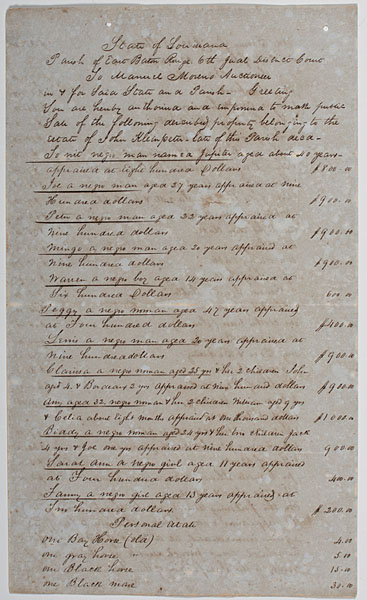 State of Louisiana
Parish of East Baton Rouge 6th Judl District Court
To Manuel Auctioneer
in & for Said State and Parish - Greeting
You are hereby authorised and empowered to make public
Sale of the following described property belonging to the
estate of John Kleinpeter late of this Parish decd -
To one negro man named Jupiter aged about 40 years -
appraised at Eight hundred Dollars $800.00
Joe a negro man aged 27 years appraised at Nine
Hundred dollars $900.00
a negro man aged 33 years appraised at
Nine hundred dollars $900.00
Mingo a negro man aged 20 years appraised at
Nine hundred dollars $900.00
Warren a negro boy aged 14 years appraised at
Six hundred Dollars 600.00
Peggy a negro woman aged 47 years appraised
at Four hundred dollars $400.00
a negro woman aged 20 years appraised at
Nine hundred dollars $900.00
Clarissa a negro woman aged 25 yrs & her 2 children John
aged 4 & 2 yrs appraised at Nine hundred dollars $900.00
Amy aged 32, negro woman & her 2 children aged 9 yrs
& Celia about eight months appraised at One thousand dollars $1000.00
Biddy a negro woman aged 24 yrs & her two children Jack
4 yrs & Joe one yrs appraised at nine hundred dollars 900.00
Sarah Ann a negro girl aged 11 years appraised
at Four hundred dollars 400.00
Fanny a negro girl aged 13 years appraised at
hundred dollars $200.00
Personal Estate
One Bay Horse (old) 4.00
one gray horse " 5.00
one Black horse 15.00
one Black mare 30.00